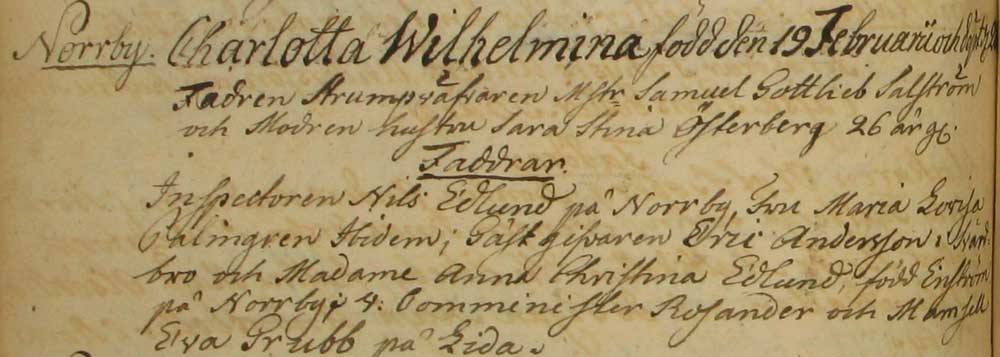 Norrby. Charlotta Wilhelmina född den 19 Februarii och
Fadren Strumpväfvaren Mstr Samuel Gottlieb Salström
och Modren hustru Sara Stina Österberg 26 år g.
Faddrar.
Inspectoren Nils Edlund på Norrby, Fru Maria Lovisa
Palingren Ibidem; Gästgifvaren Eric Andersson i Svärd-
bro och Madame Anna Christina Edlund, född Enström
på Norrby; v. Comminister Rosander och Mamsell
Eva Grubb på Lida.